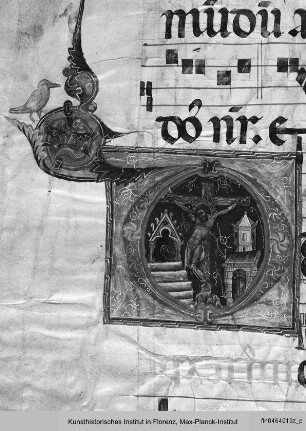 mūdū a
do nr̄. e
Kunsthistorisches Institut in Florenz, Max-Planck-Institut